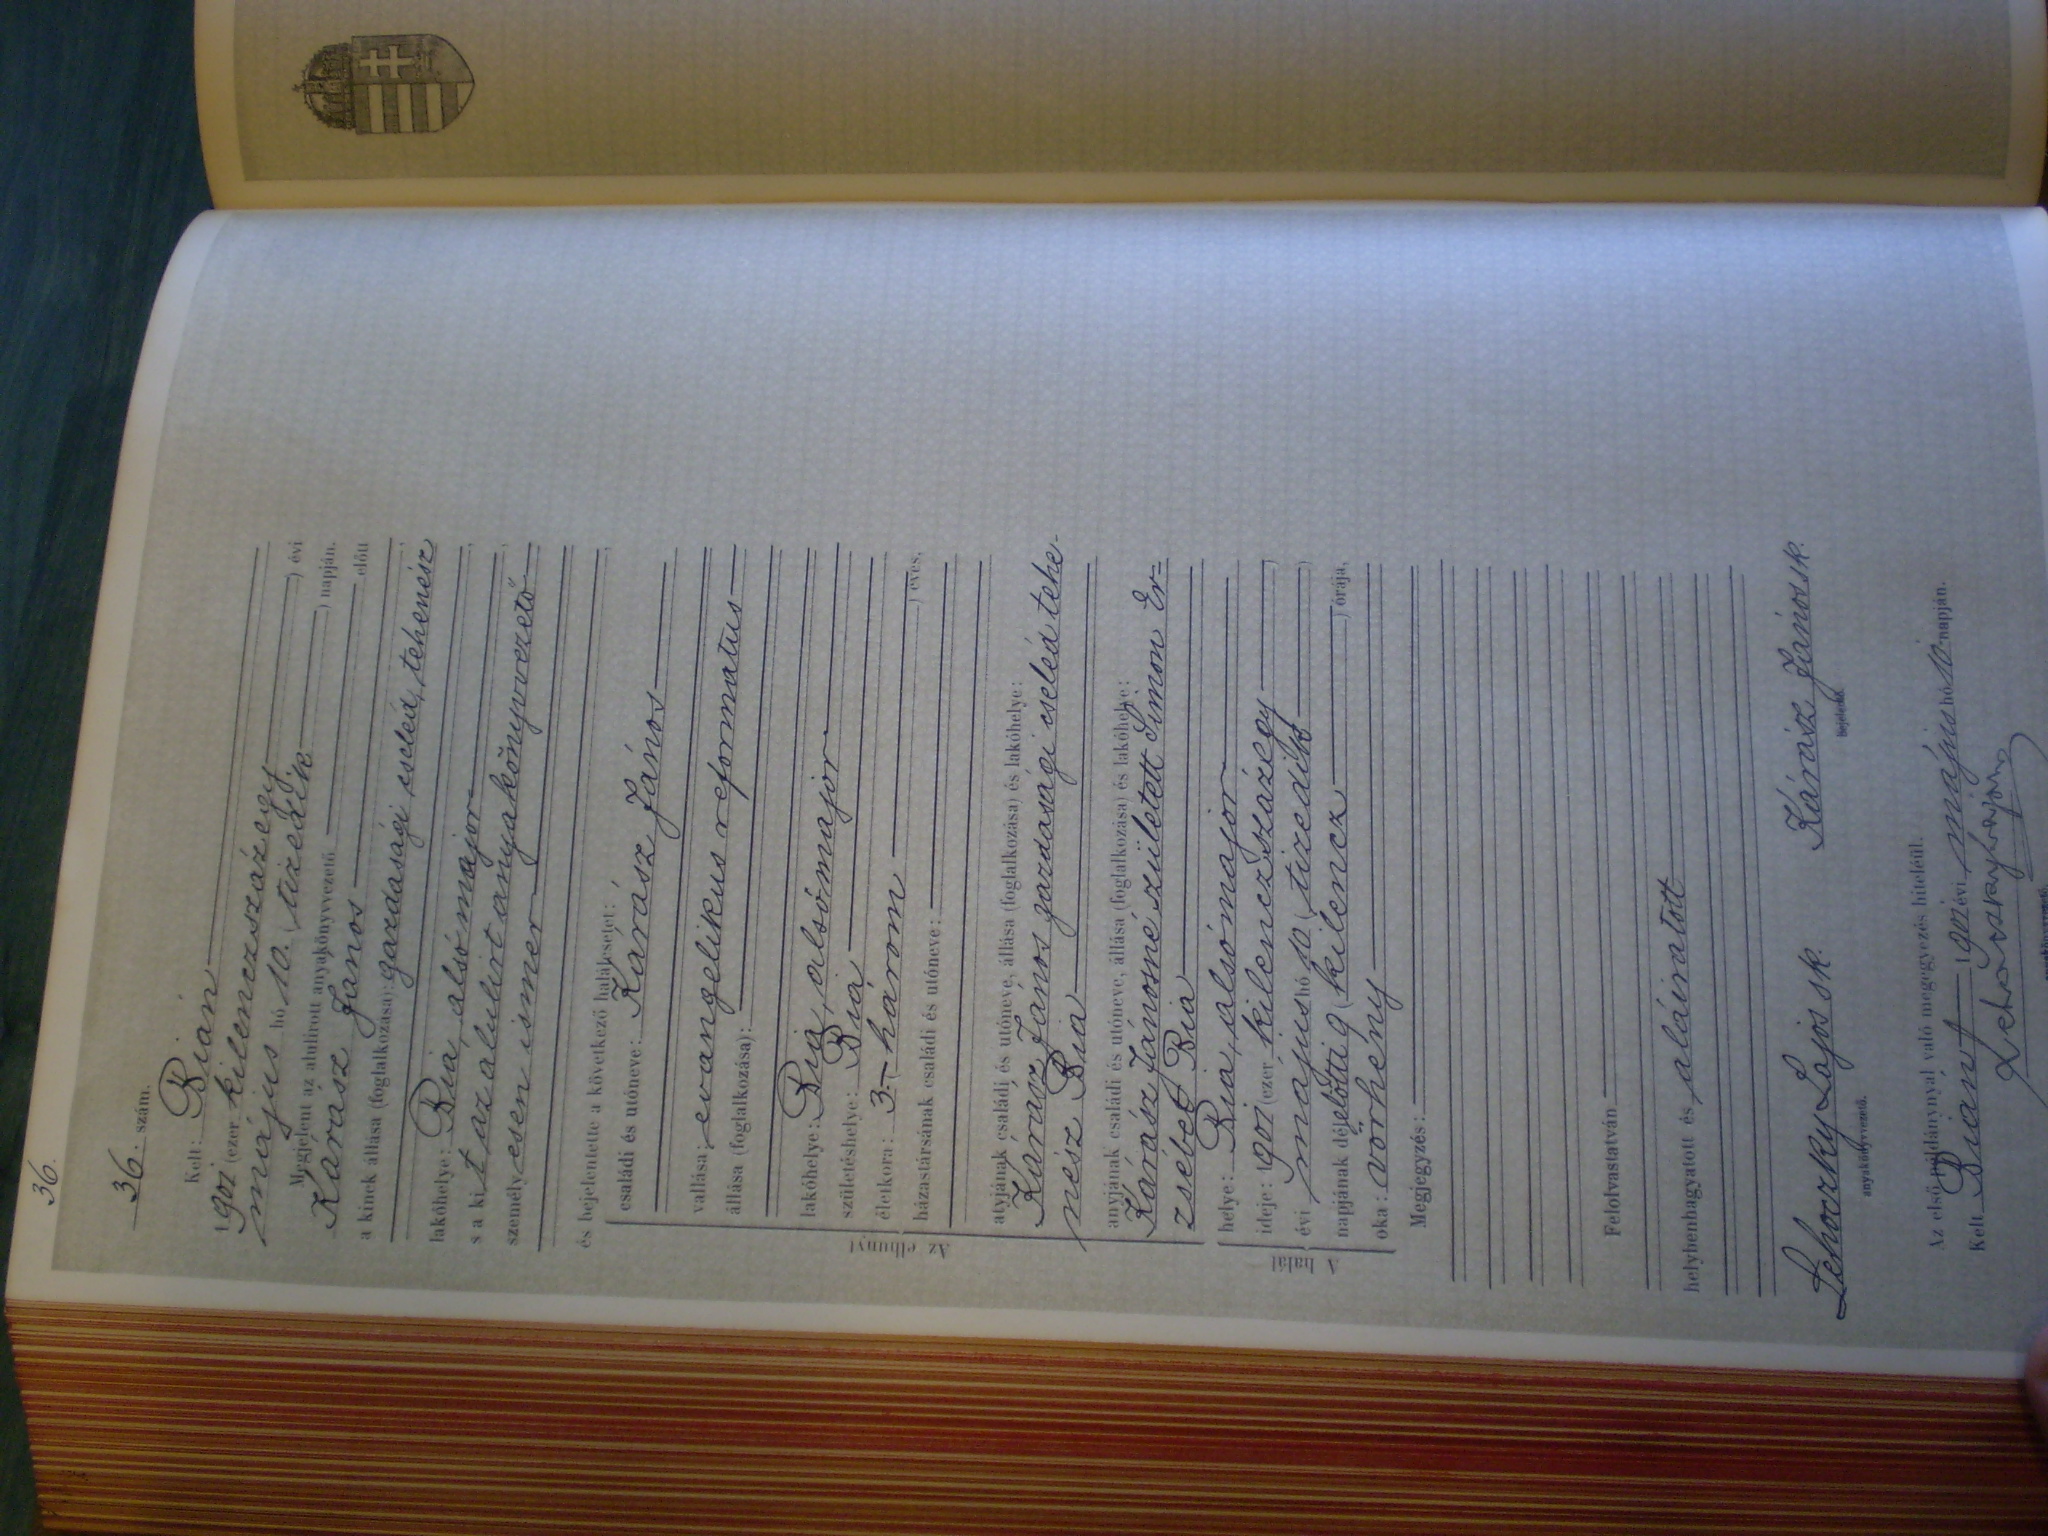 36.
36. szám.
Kelt: Bián
1901 (ezer kilenczszázegy) évi
május hó 10. (tizedik) napján.
Megjelent az alulirott anyakönyvvezető előtt
Kárász János
a kinek állása (foglalkozása): gazdasági cseléd, tehenész,
lakóhelye: Bia, alsómajor,
s a kit az alulirt anyakönyvvezető
személyesen ismer
és bejelentette a következő halálesetet:
Az elhunyt
családi és utóneve: Kárász János
vallása: evangelikus reformatus
állása (foglalkozása):
lakóhelye: Bia, alsómajor
születéshelye: Bia
életkora: 3. (három) éves,
házastársának családi és utóneve:
atyjának családi és utóneve, állása (foglalkozása) és lakóhelye:
Kárász János gazdasági cseléd tehe-
nész Bia
anyjának családi és utóneve, állása (foglalkozása) és lakóhelye:
Kárász Jánosné született Simon Er=
zsébet Bia
A halál
helye: Bia, alsómajor
ideje: 1901 (ezer kilenczszázegy)
évi május hó 10 (tizedik)
napjának délelőtti 9 (kilencz) órája,
oka: vörhény
Megjegyzés:
Felolvastatván
helybenhagyatott és aláiratott
Lehoczky Lajos sk. Kárász János sk.
anyakönyvvezető. bejelentő.
Az első példánynyal való megegyezés hiteléül.
Kelt Biánt 1901 évi május hó 10 napján.